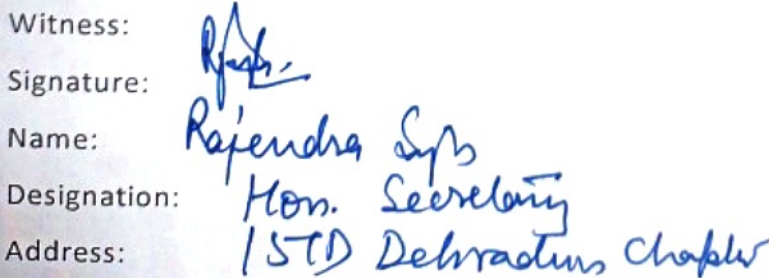 Witness:
Signature:
Name: Rajendra
Designation: Hon. Secretary
Address: ISTD Dehradun Chapter